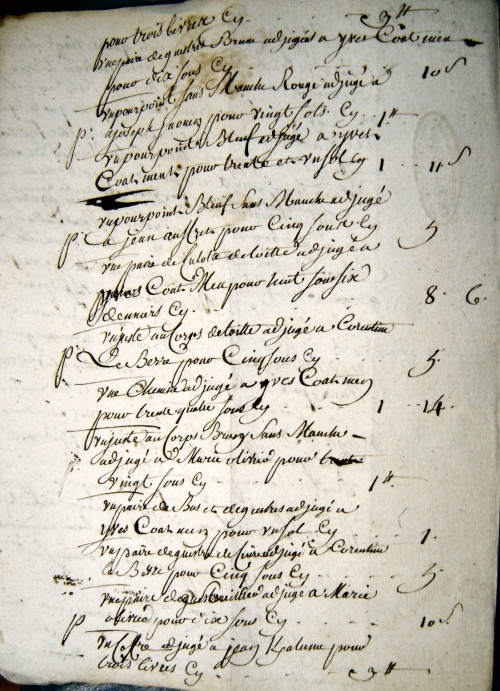 pour trois livres Cy 3 ₶
une paire de guetres Brune adjugés a yves Coatmen
pour dix sous Cy 10 s
un pourpoint sans Manche Rouge adjugé a
p. a joseph pour vingt sols Cy 1 ₶
un pourpoint Bleuf adjugé a yves
Coatmen pour trente et un sol Cy 1 11 s
un pourpoint Bleuf sans Manche adjugé
p. a jean pour Cinq sous Cy 5
une paire de culote de toille adjugé a
yves Coat Men pour huit sous six
deniers Cy 8 6
un juste au Corps de toille adjugé a Corentin
p. Le Berre pour Cinq sous Cy 5
une Chemise adjugé a yves Coatmen
pour trente quatre sous Cy 1 14
un juste au Corps sans Manche
adjugé a Marie olivier pour
vingt sous Cy 1 ₶
un paire de Bas et de guetres adjugé a
yves Coatmen pour un sol Cy 1
un paire de guetres de adjugé a Corentin
Le Berre pour Cinq sous Cy 5
une paire de adjugé a Marie
p. olivier pour dix sous Cy 10 s
un Coffre adjugé a jean pour
trois livres Cy 3 ₶